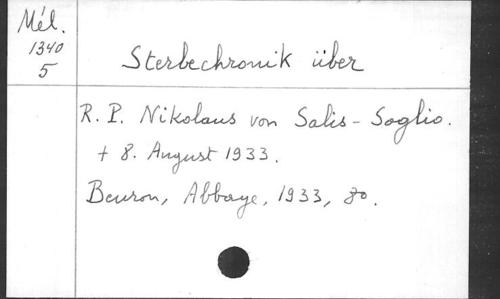 Mél.
1340
5
Sterbechronik über
R. P. Nikolaus von Salis - Soglio.
+ 8. August 1933.
Beuron, Abbaye, 1933, 8o.